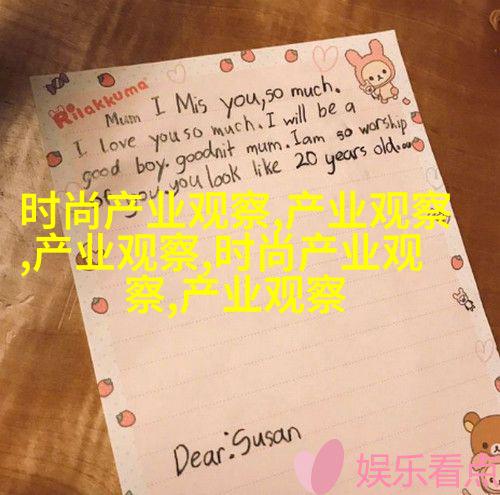 Rilakkuma
Mum I Mis you, so much.
I love you so much. I will be a
good boy. goodnit mum. I am so worship
of you. you look like 20 years old.
时尚产业观察,产业观察
,产业观察,时尚产业观
察,产业观察
Dear: Susan
娱乐看点